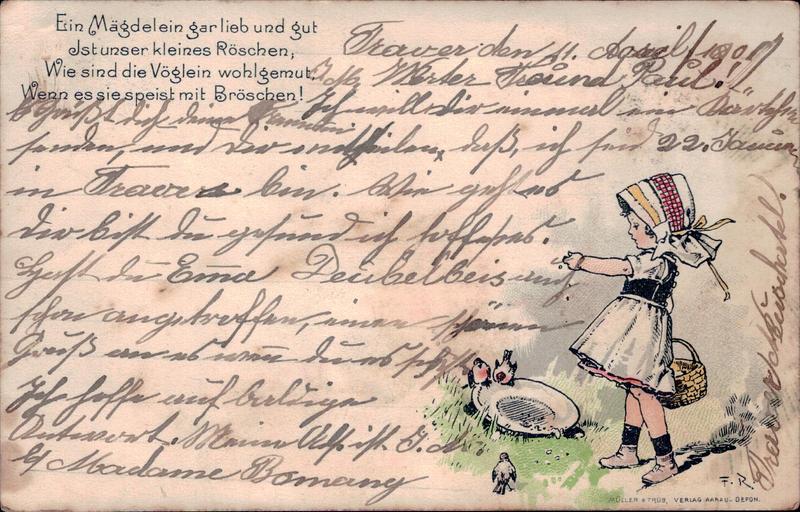 Ein Mägdelein gar lieb und gut
Ist unser kleines Röschen,
Wie sind die Vöglein wohlgemut,
Wenn es sie speist mit Bröschen!
Travers den 11. April 1901
Werter Freund Paul!
Ich will dir einmal ein Kärtchen
senden, und dir mitheilen, daß, ich seid 22. Januar
in Travers bin. Wie geht es
dir bist du gesund ich hoffe es.
Hast du Emma Deubelbeis auch
schon angetroffen, einen schönen
Gruß an es wenn du es
Ich hoffe auf baldige
Antwort. Meine Adr. ist
Madame Bomany
F. R.
MÜLLER & TRÜB, VERLAG AARAU - DEPON.